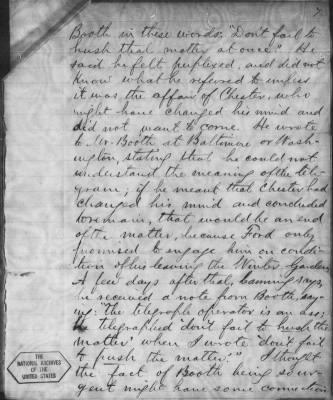 7
Booth in these words: "Don't fail to
hush that matter at once." He
said he felt perplexed, and did not
know what he referred to unless
it was the affair of Chester, who
might have changed his mind and
did not want to come. He wrote
to Mr. Booth at Baltimore or Wash-
ington, stating that he could not
understand the meaning of the tele-
gram; if he meant that Chester had
changed his mind and concluded
to remain, that would be an end
of the matter, because Ford only
promised to engage him on condi-
tion of his leaving the Winter Garden.
A few days after that, Canning says,
he received a note from Booth, say-
ing: "The telegraph operator is an ass;
he telegraphed 'don't fail to hush the
matter' when I wrote 'don't fail
to push the matter.'" I thought
the fact of Booth being so ur-
gent might have some connection
THE
NATIONAL ARCHIVES
OF THE
UNITED STATES